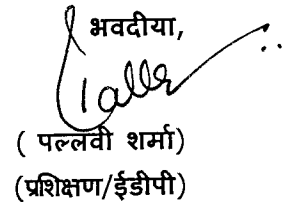 भवदीया,
( पल्लवी शर्मा)
(प्रशिक्षण/ईडीपी)